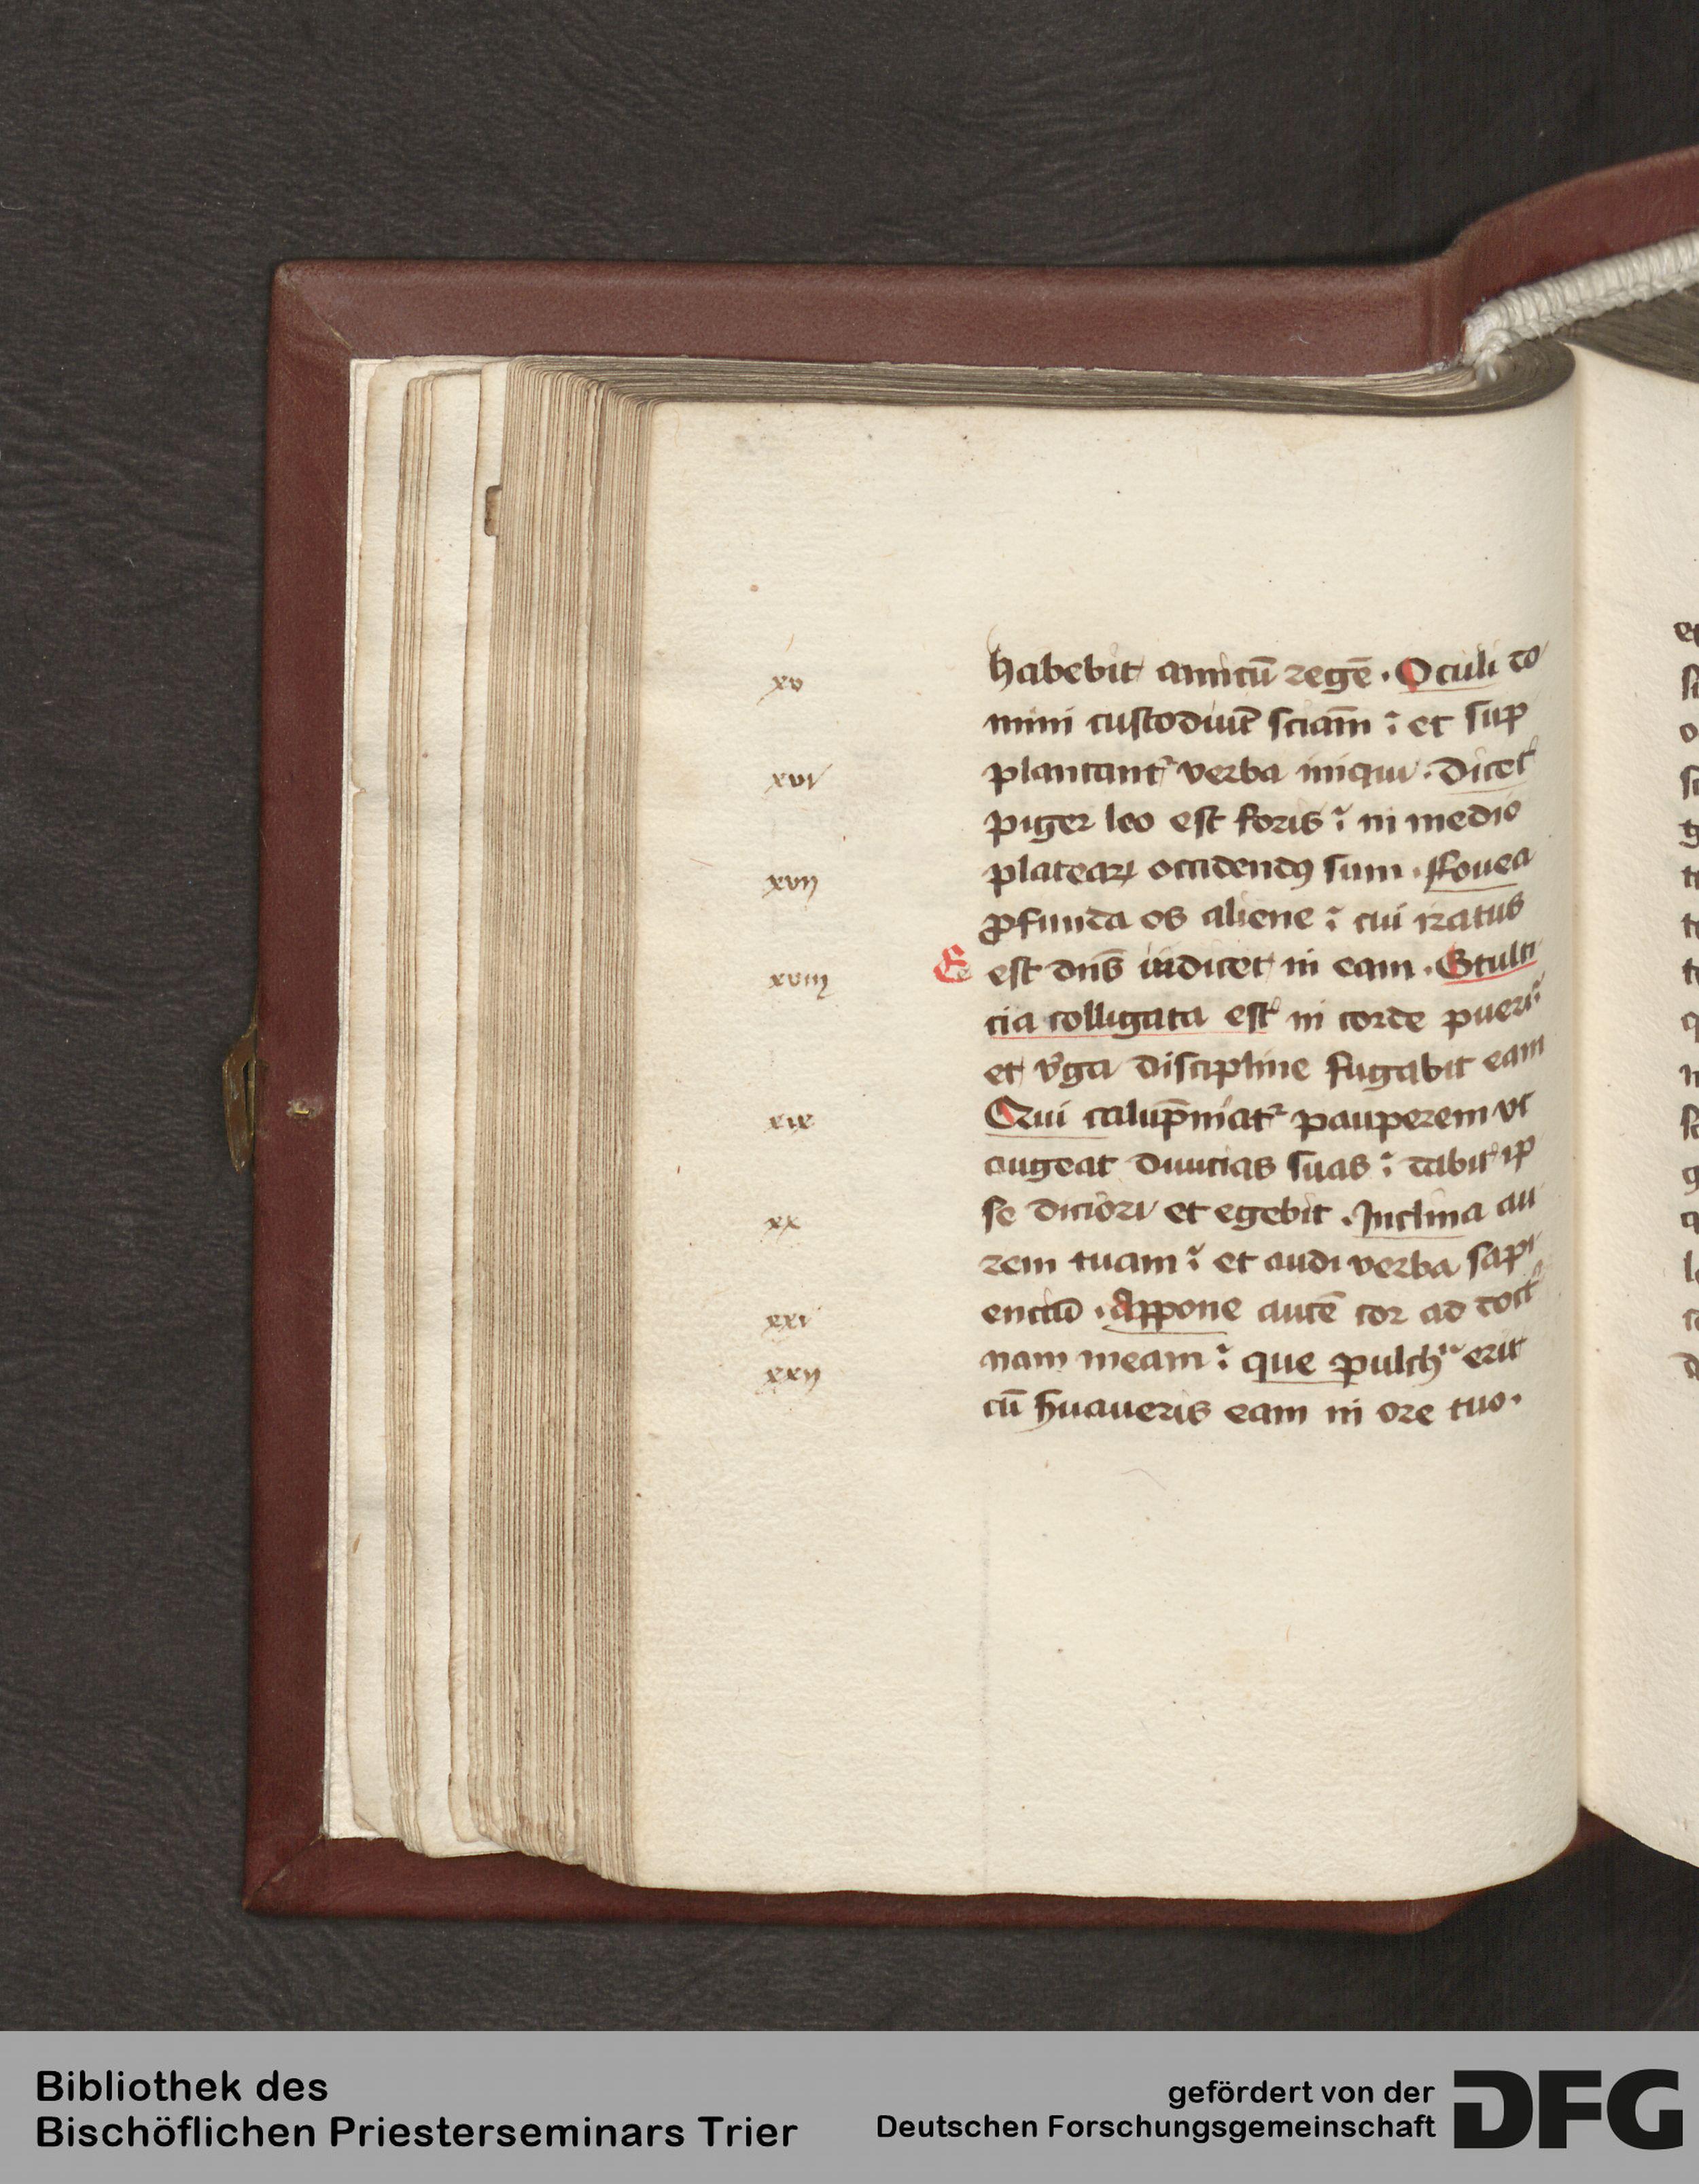 xv
xvi
xvij
xviij
xix
xx
xxi
xxij
habebit amicū regē · Oculi do
mini custodiūt sciam̄ : et sup
plantant᷑ verba iniqui · Dicet
piger leo est foris : in medio
plateaꝝ occidendꝯ sum · ffouea
ꝓfunda os aliene : cui iratus
E est dn̄s incidet in eam · Stulti
cia colligata est in corde pueri :
et v̓ga discipline fugabit eam
Qui calūpniat᷑ pauperem vt
augeat diuicias suas : dabit ip
se diciori et egebit · Inclina au
rem tuam : et audi verba sapi
entiū · Appone autē cor ad doct
nam meam : que pulch^a erit
cū ſuaueris eam in ore tuo ·
Bibliothek des
Bischöflichen Priesterseminars Trier
gefördert von der
Deutschen Forschungsgemeinschaft
DFG